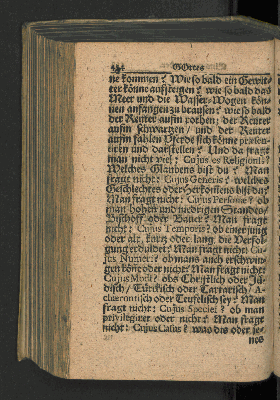 GOttes
ne kommen? Wie so bald ein Gewit-
ter könne aufsteigen? wie so bald das
Meer und die Wasser-Wogen kön-
nen anfangen zu brausen? wie so bald
der Reuter aufm rothen; der Reuter
aufm schwartzen/ und der Reuter
aufm fahlen Pferde sich könne præsen-
tiren und darstellen? Und da fragt
man nicht viel: Cujus es Religionis?
Welches Glaubens bist du? Man
fragt nicht: Cujus Generis? welches
Geschlechtes oder Herkom̃ens bist du?
Man fragt nicht: Cujus Personæ? ob
man hohen und niedrigen Standes/
Bischoff oder Bauer? Man fragt
nicht: Cujus Temporis? ob einer jung
oder alt, kurtz oder lang die Verfol-
gung erduldet? Man fragt nicht: Cu-
jus Numeri? ob mans auch erschwin-
gen könte oder nicht? Man fragt nicht:
Cujus Modi? obs Christlich oder Jü-
disch/ Türckisch oder Tartarisch/ A-
lacrontisch oder Teufelisch sey? Man
fragt nicht: Cujus Speciei? ob man
privilegiret oder nicht? Man fragt
nicht: Cujus Casus? was dis oder je-
nes